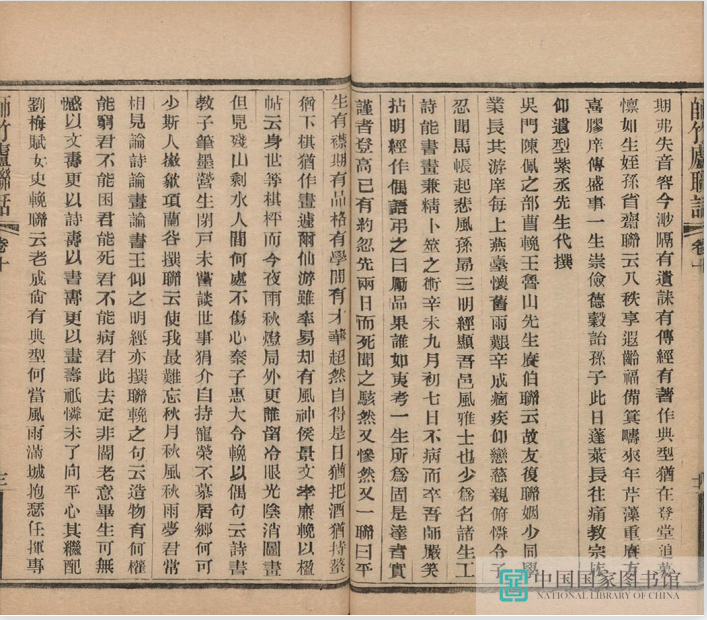 師竹廬聯話 卷十
期弗失音容今渺隔有遺誄有傳經有著作典型猶在登堂追慕
懍如生姪孫省齋聯云八秩享遐齡福備箕疇來年芹藻重賡方
萬膠庠傳盛事一生崇儉德穀詒孫子此日蓬萊長往痛教宗族
仰遺型紫丞先生代撰
吳門陳佩之部曹輓王魯山先生賡伯聯云故友復聯姻少同學
業長共游庠每上燕臺懷舊雨艱辛成痼疾仰戀慈親俯憐令子
忍聞馬帳起悲風孫昜三明經顯吾邑風雅士也少爲名諸生工
詩能書畫兼精卜筮之術辛未九月初七日不病而卒吾師嚴笑
拈明經作偶語弔之曰勵品果誰如夷考一生所爲固是達者實
謹者登高已有約忽先兩日而死聞之駭然又慘然又一聯曰平
生有襟期有品格有學問有才華超然自得是日猶把酒猶持螯
猶下棋猶作畫遽爾仙游雖率易却有風神侯景文孝廉輓以楹
帖云身世等棋枰而今夜雨秋燈局外更誰留冷眼光陰消圖畫
但見殘山剩水人間何處不傷心秦子惠大令輓以偶句云詩書
教子筆墨營生閉戶未嘗談世事狷介自持寵榮不慕居鄉何可
少斯人嶽歙項蘭谷撰聯云使我最難忘秋月秋風秋雨夢君常
相見論詩論畫論書王仰之明經亦撰聯輓之句云造物有何權
能窮君不能困君能死君不能病君此去定非閻老意畢生可無
憾以文壽更以詩壽以書壽更以畫壽祇憐未了向平心其繼配
劉梅賦女史輓聯云老成尙有典型何當風雨滿城抱瑟任揮專
師竹廬聯話 卷十
三
中国国家图书馆
NATIONAL LIBRARY OF CHINA